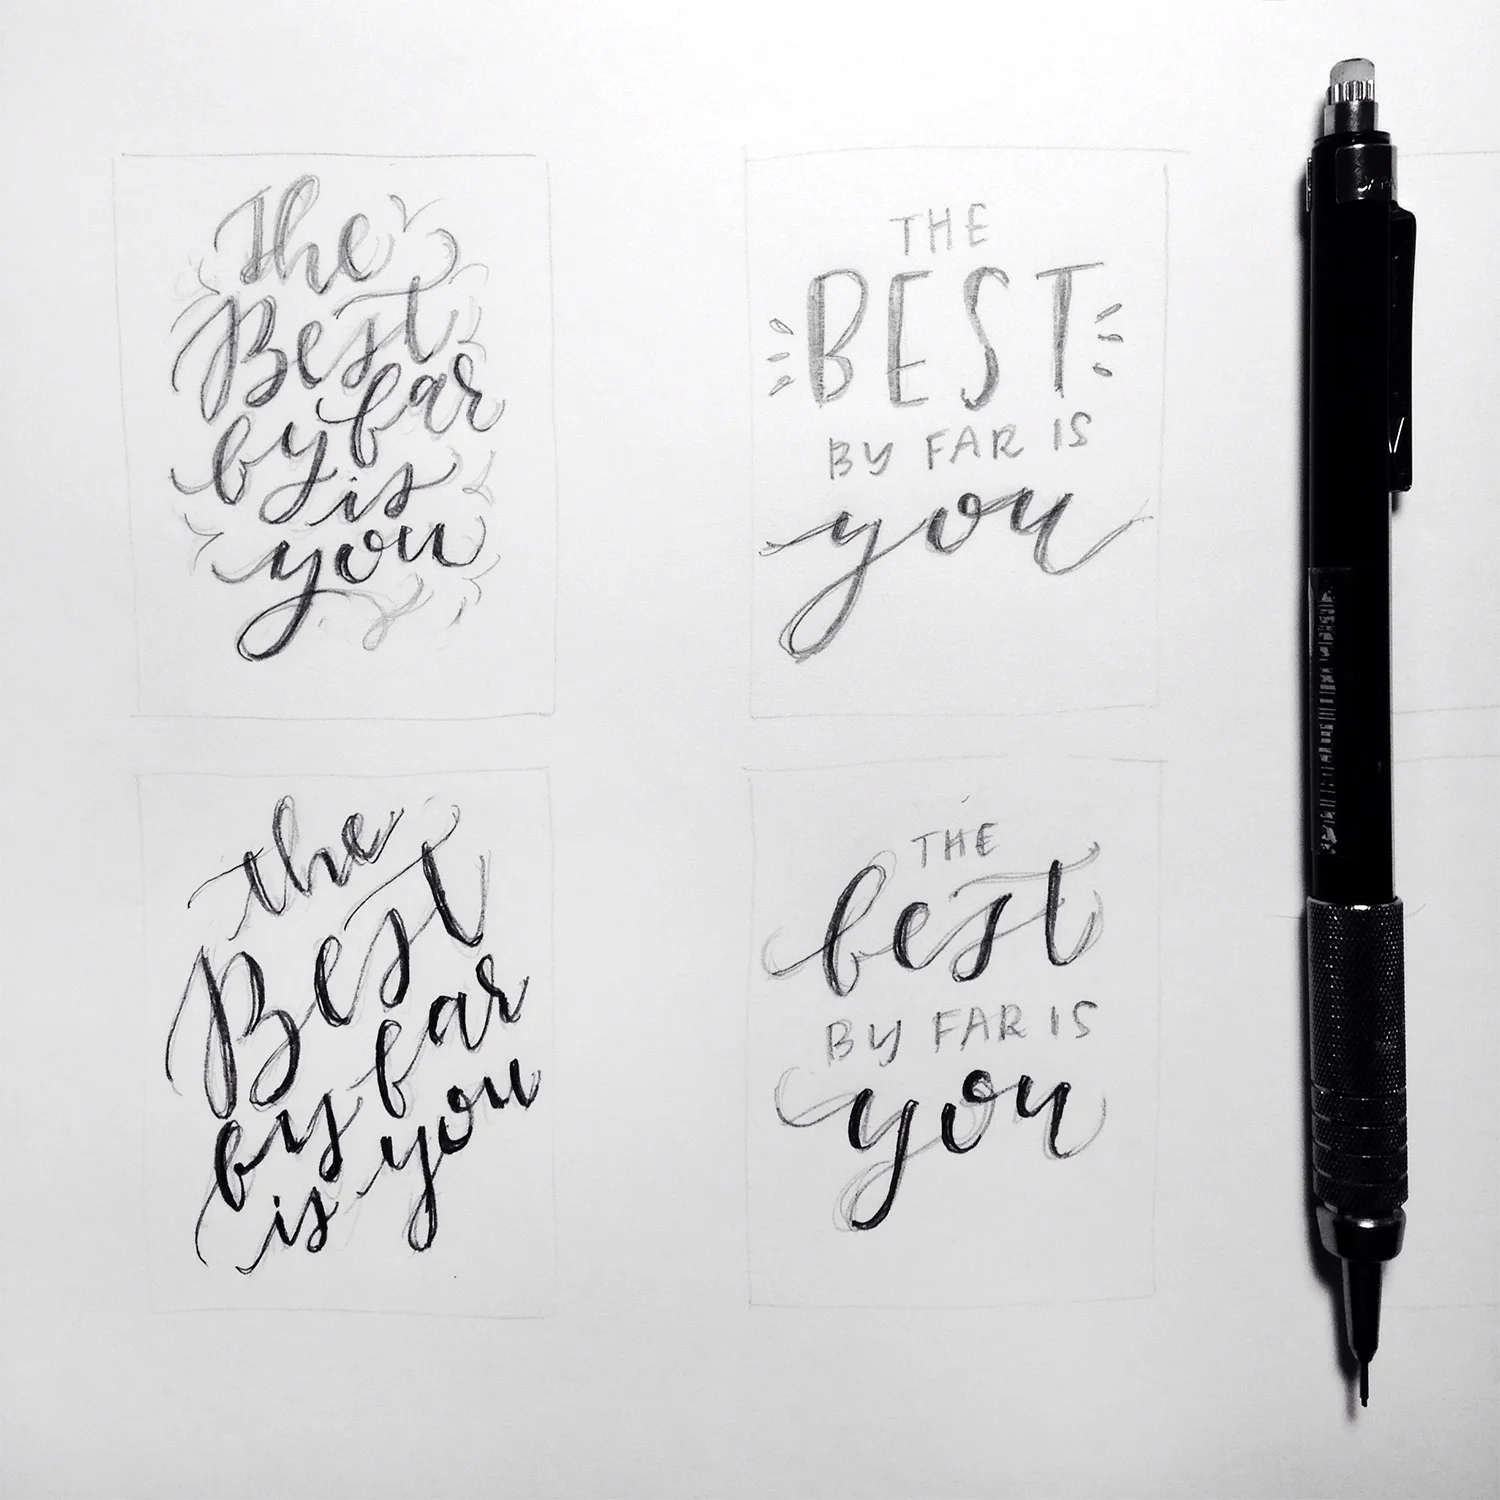 The
Best
by far
is
you
THE
BEST
BY FAR IS
you
the
Best
by far
is you
THE
best
BY FAR IS
you